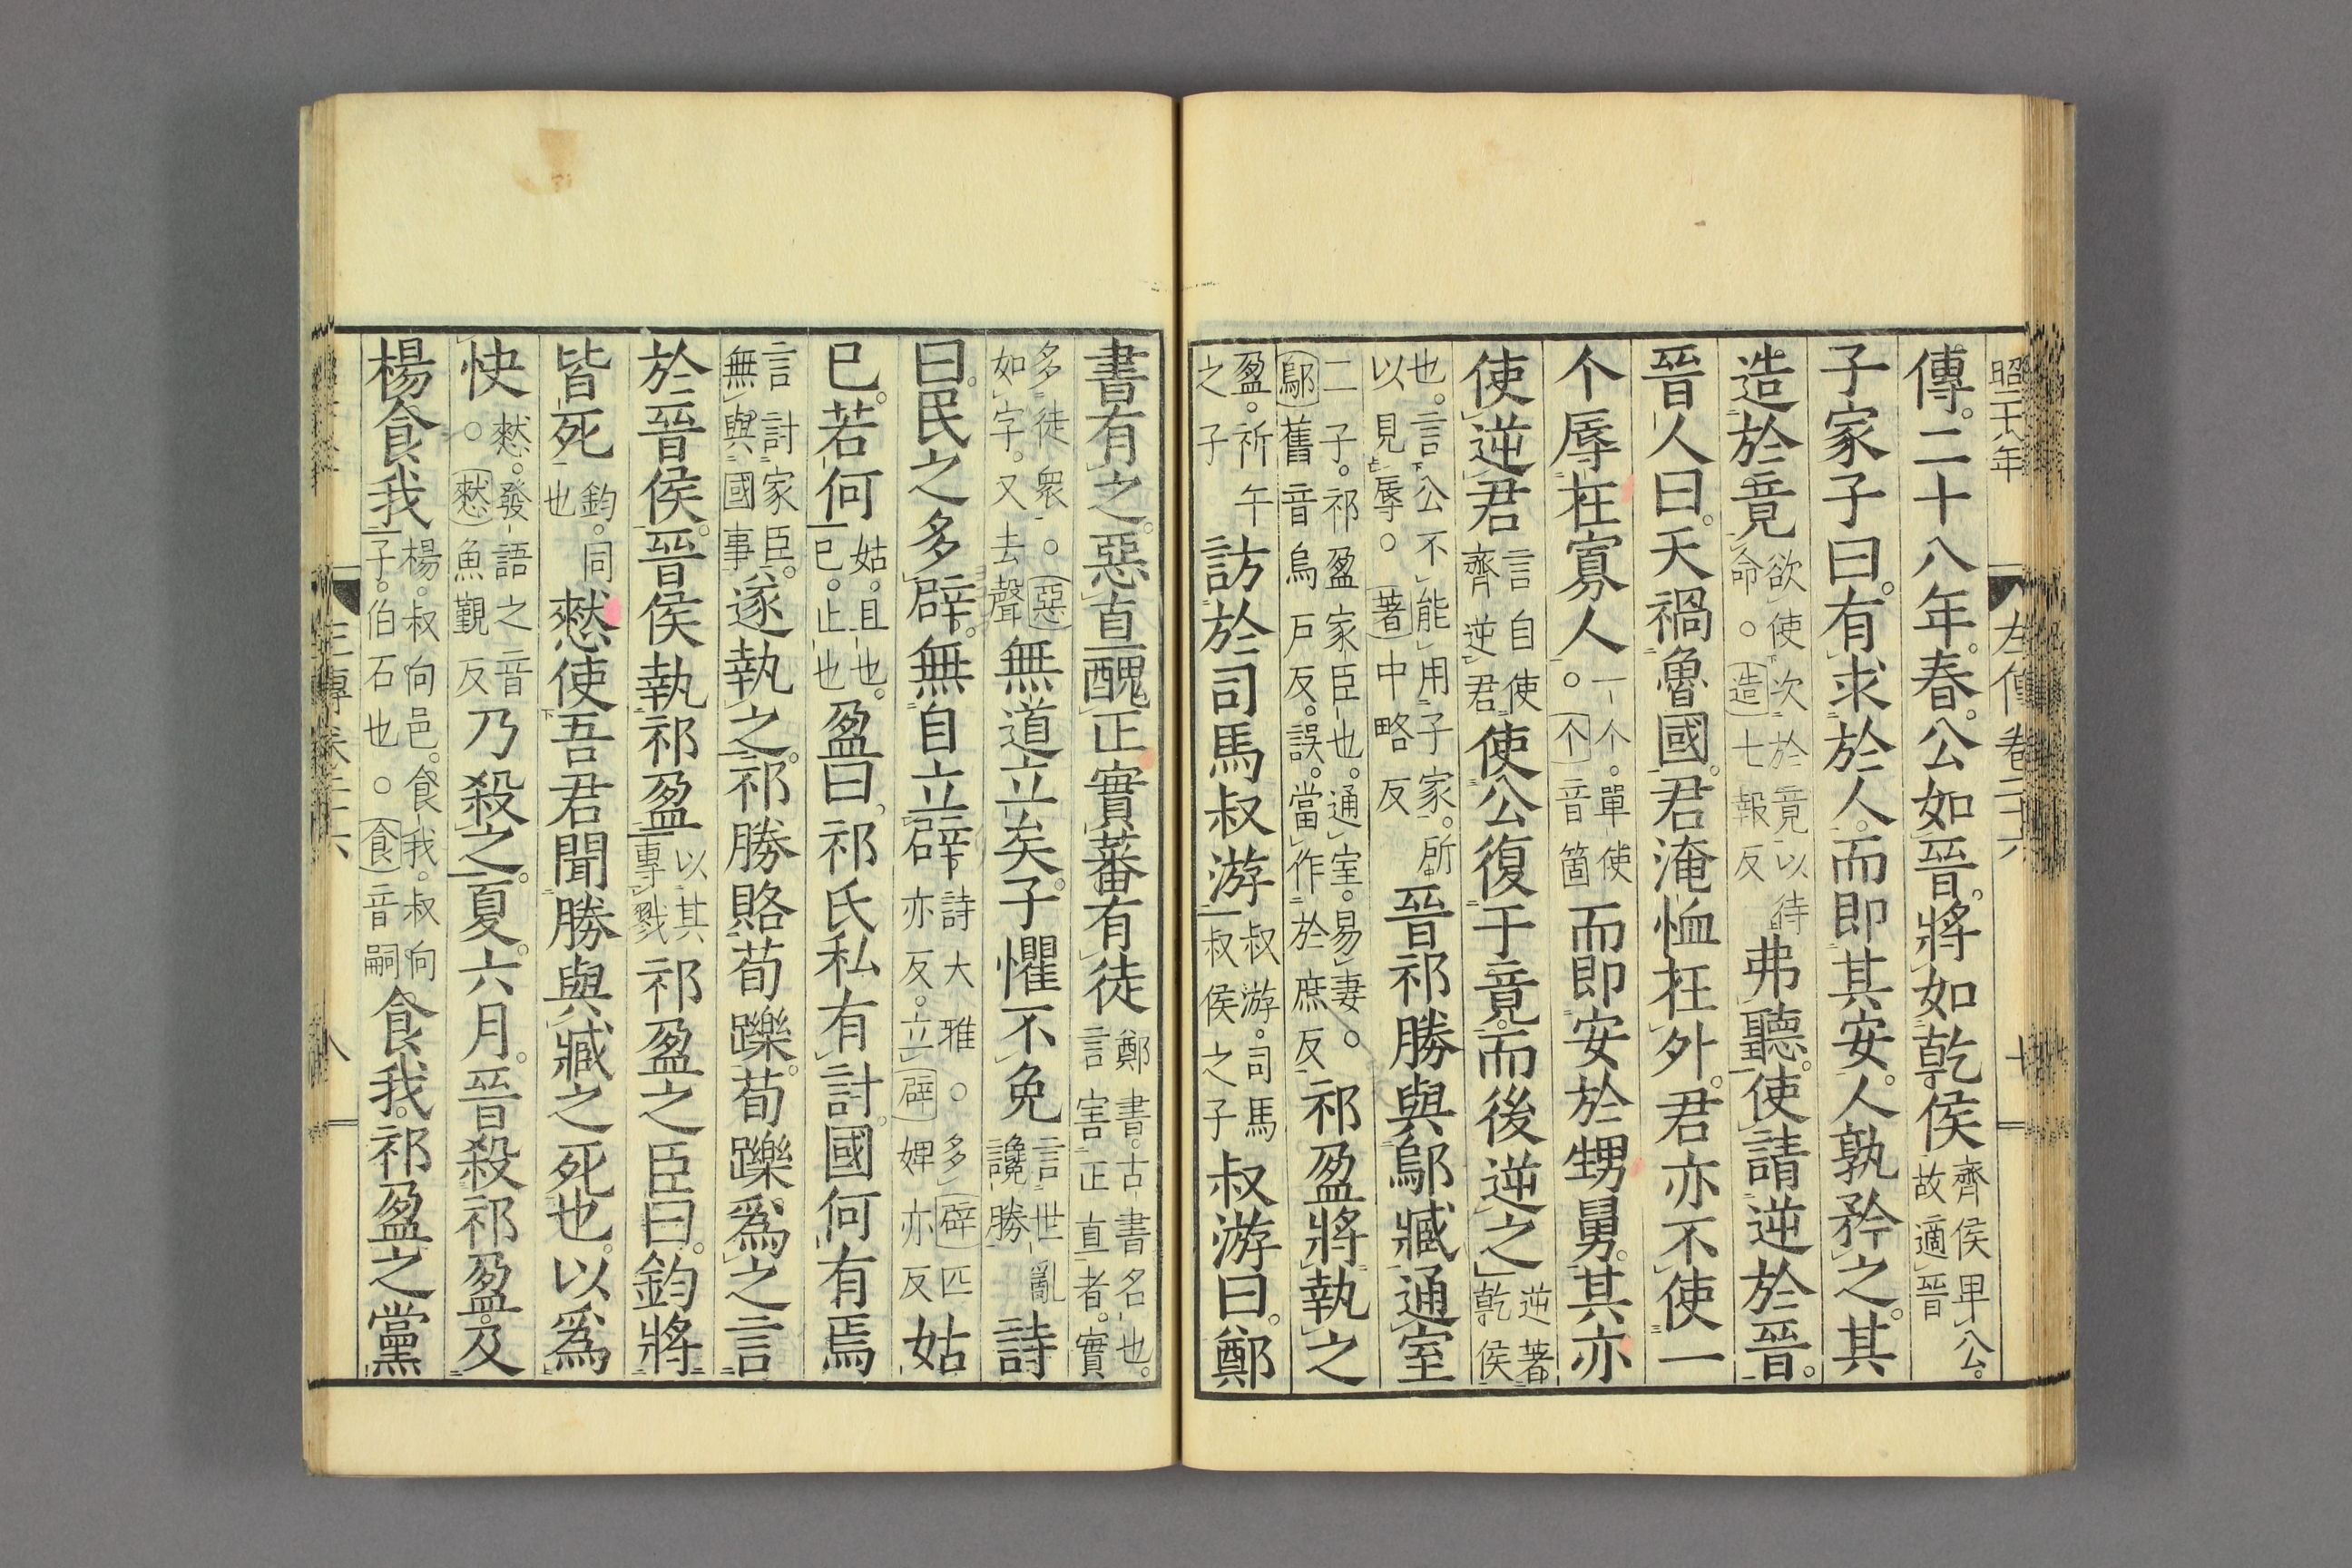 昭二十八年 左傳卷二十六
傳二十八年春公如晉將如乾侯齊侯卑公故適晉
子家子曰有求於人而即其安人孰矜之其
造於竟欲使次於竟以待命○造七報反弗聽使請逆於晉
晉人曰天禍魯國君淹恤在外君亦不使一
个辱在寡人一个單使○个音箇而即安於甥舅其亦
使逆君言自使齊逆君使公復于竟而後逆之逆著乾侯
也言公不能用子家所以見辱○著中略反晉祁勝與鄔臧通室
二子祁盈家臣也通室易妻○鄔舊音烏戶反誤當作於庶反祁盈將執之
盈祈午之子訪於司馬叔游叔游司馬叔侯之子叔游曰鄭
書有之惡直醜正實蕃有徒鄭書古書名也言害正直者實
多徒衆○惡如字又去聲無道立矣子懼不免言世亂讒勝詩
曰民之多辟無自立辟詩大雅○多辟匹亦反立辟婢亦反姑
已若何姑且也已止也盈曰祁氏私有討國何有焉
言討家臣無與國事遂執之祁勝賂荀躒荀躒爲之言
於晉侯晉侯執祁盈以其專戮祁盈之臣曰鈞將
皆死鈞同也憖使吾君聞勝與臧之死也以爲
快憖發語之音○憖魚覲反乃殺之夏六月晉殺祁盈及
楊食我楊叔向邑食我叔向子伯石也○食音嗣食我祁盈之黨